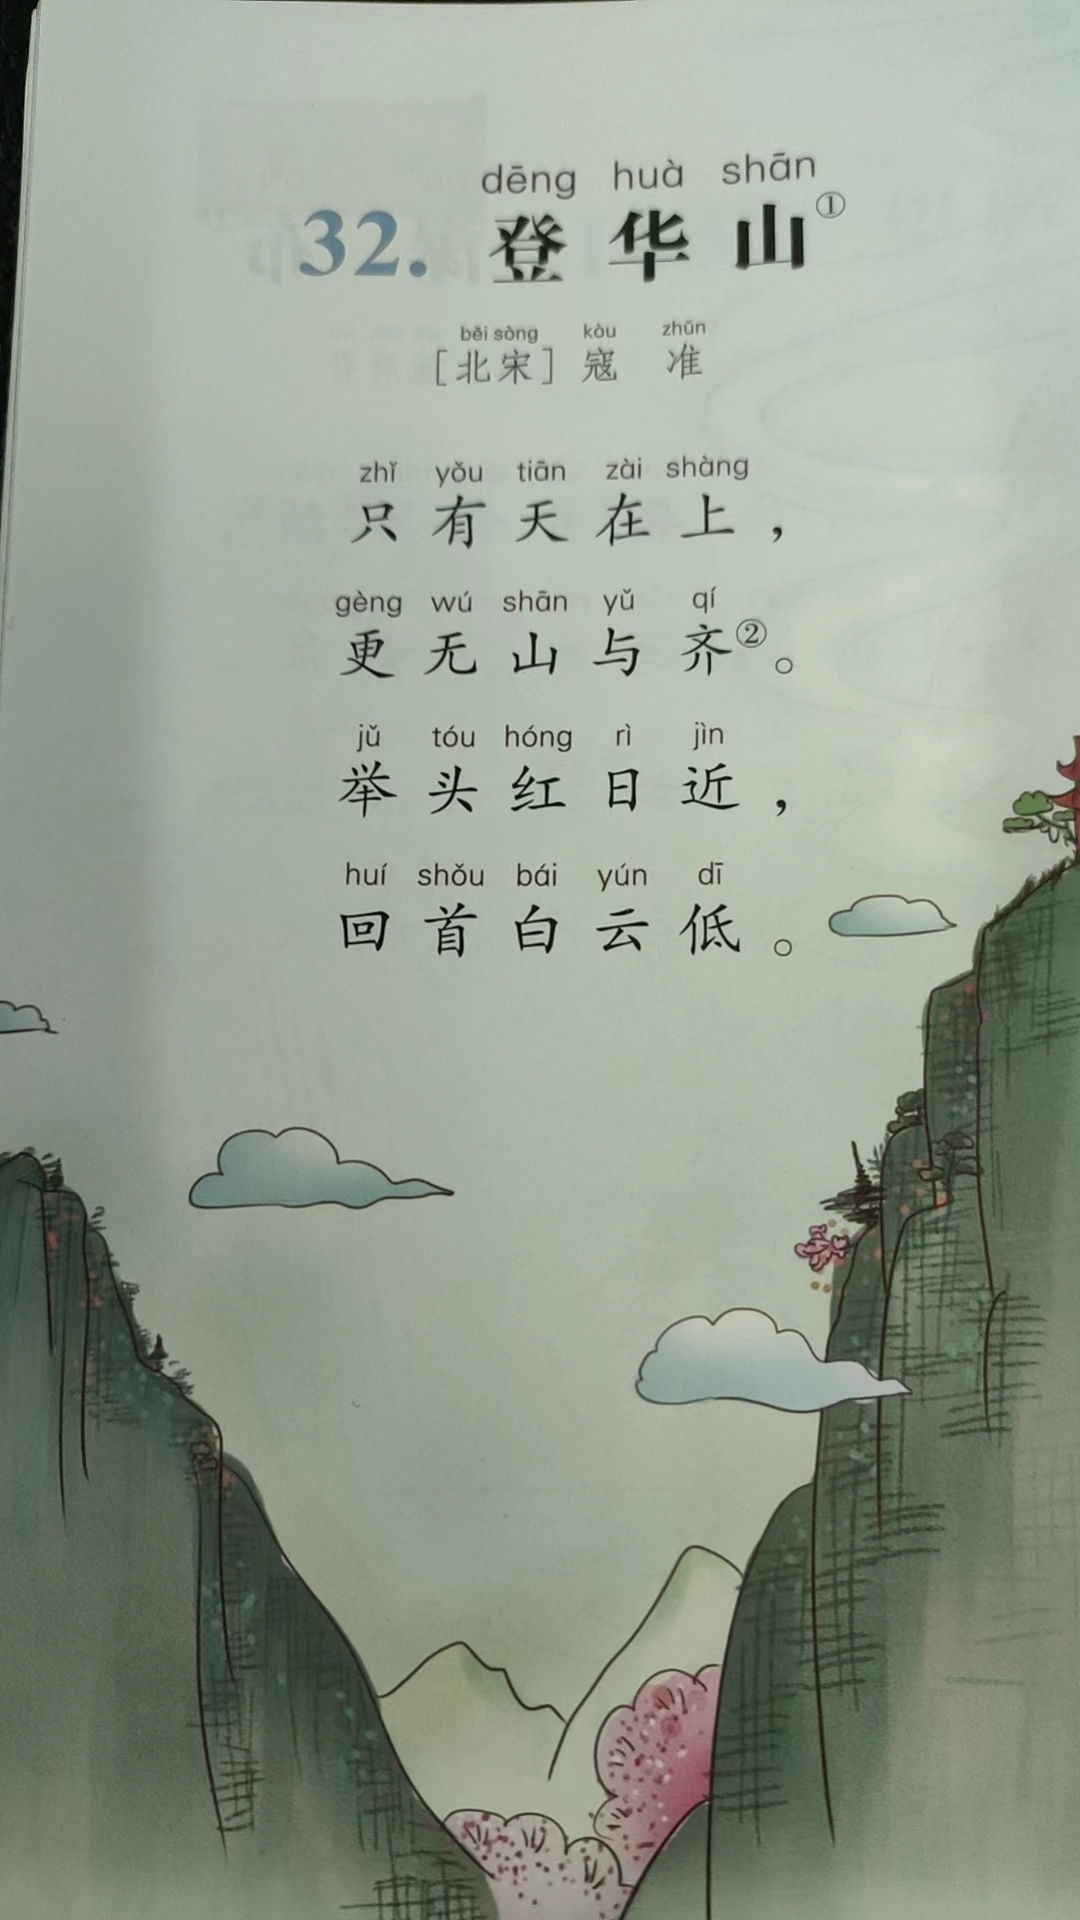 dēng huà shān
32. 登华山①
běi sòng kòu zhǔn
[北宋] 寇 准
zhǐ yǒu tiān zài shàng
只有天在上，
gèng wú shān yǔ qí
更无山与齐②。
jǔ tóu hóng rì jìn
举头红日近，
huí shǒu bái yún dī
回首白云低。